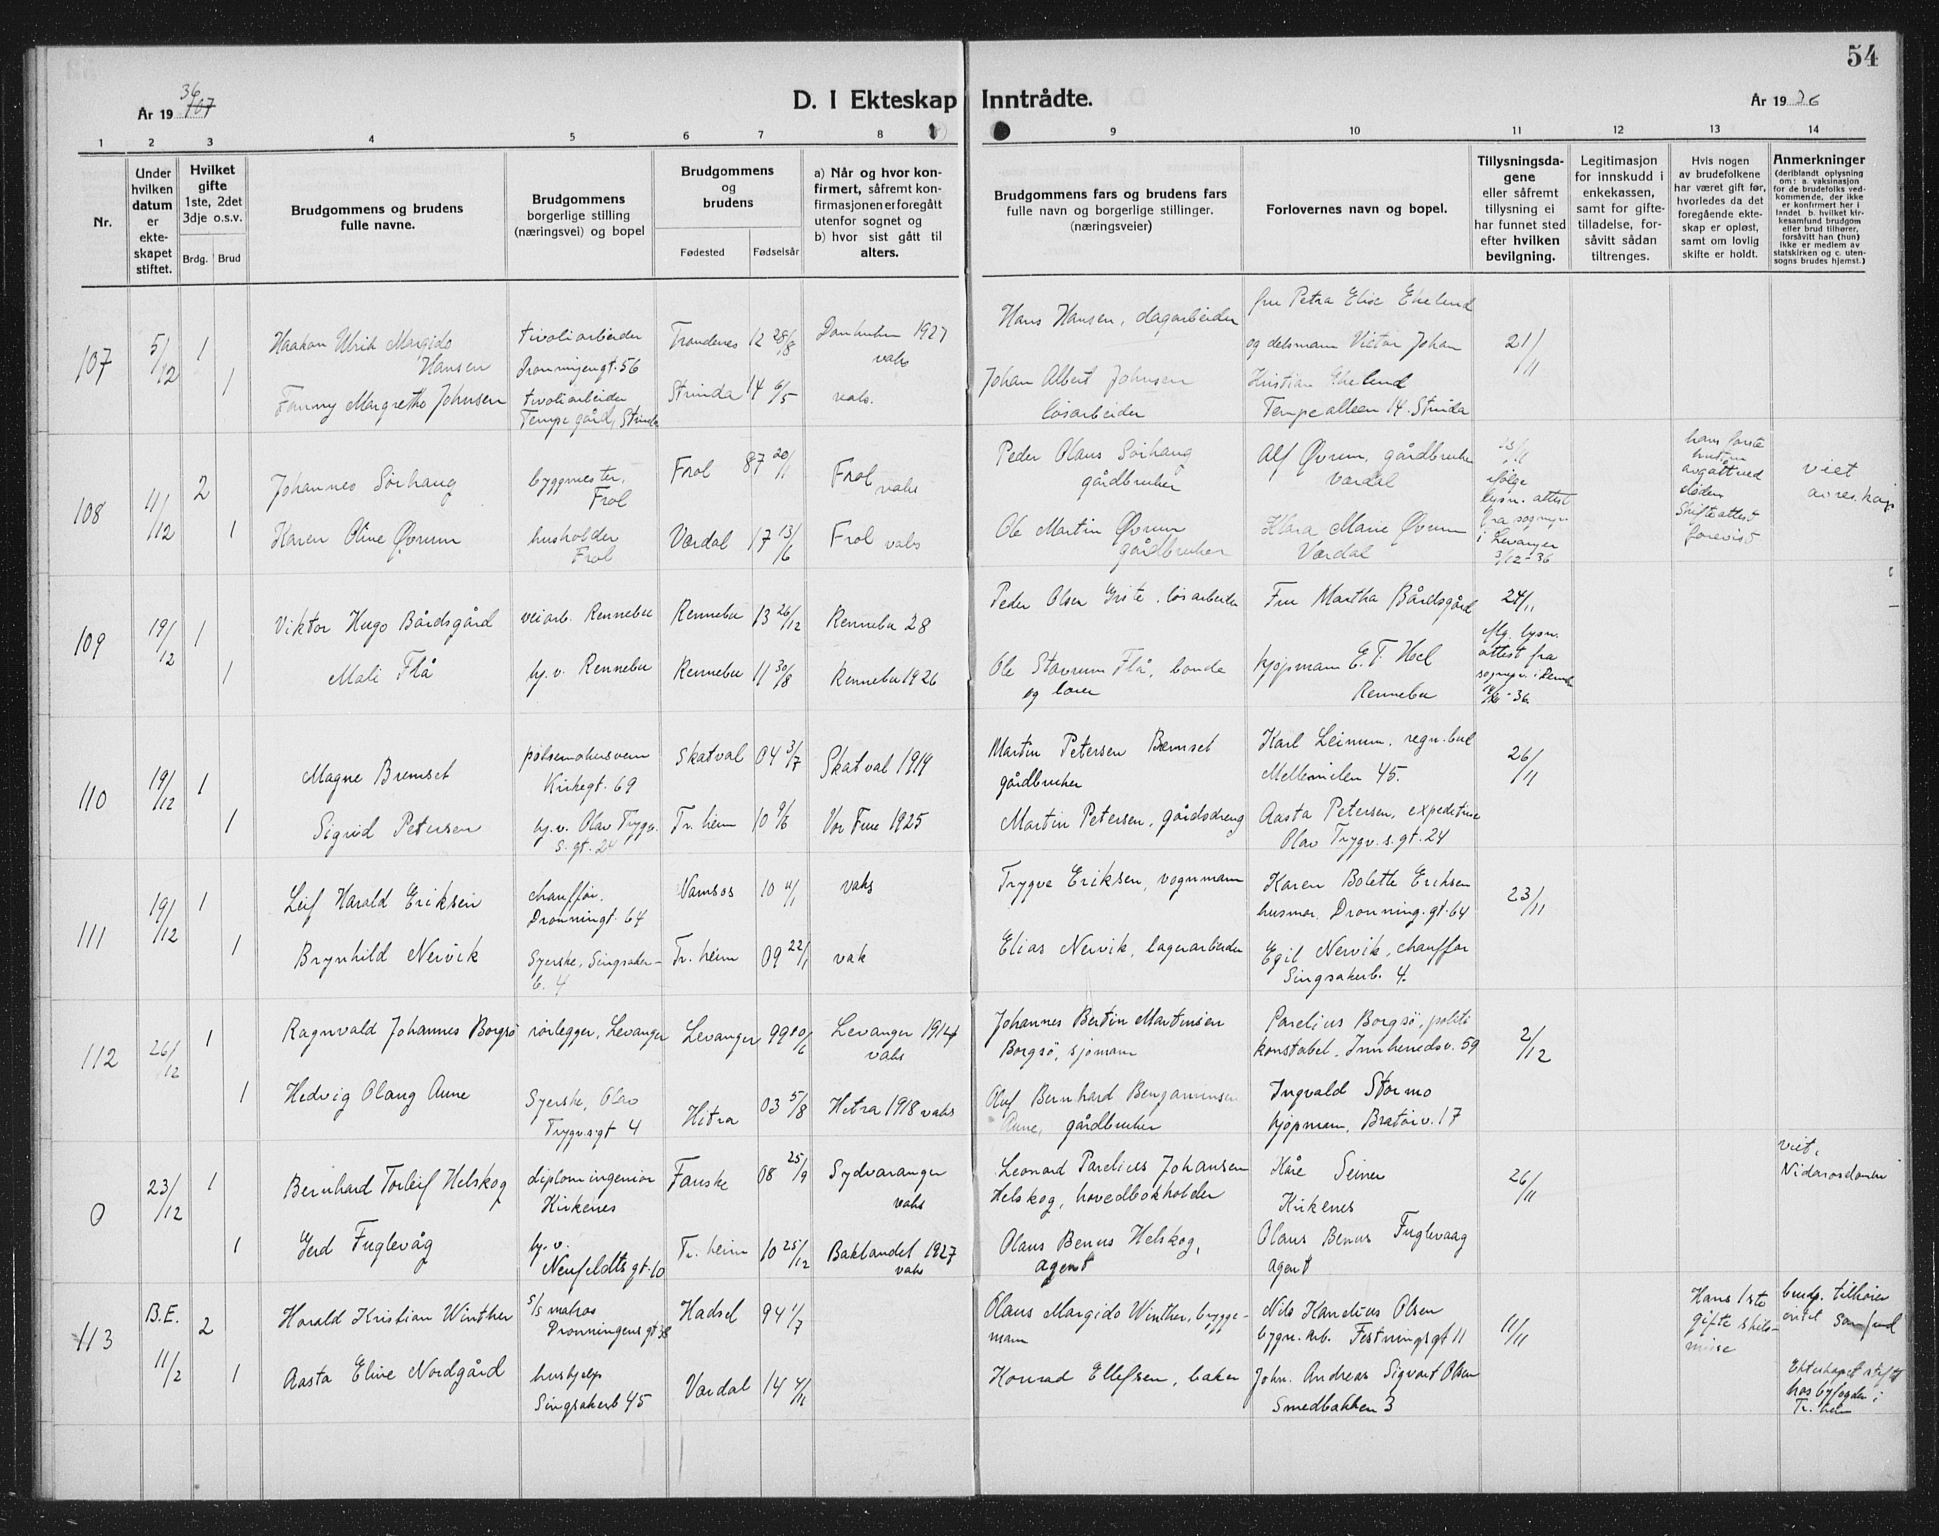 54
År 19 107 36
D. I Ekteskap Inntrådte.
År 19 36
1 2 3 4 5 6 7 8 9 10 11 12 13 14
Nr.
Under hvilken datum er ekteskapet stiftet.
Hvilket gifte 1ste, 2det 3dje o.s.v.
Brdg. Brud
Brudgommens og brudens fulle navne.
Brudgommens borgerlige stilling (næringsvei) og bopel
Brudgommens og brudens
Fødested Fødselsår
a) Når og hvor konfirmert, såfremt konfirmasjonen er foregått utenfor sognet og b) hvor sist gått til alters.
Brudgommens fars og brudens fars fulle navn og borgerlige stillinger. (næringsveier)
Forlovernes navn og bopel.
Tillysningsdagene eller såfremt tillysning ei har funnet sted efter hvilken bevilgning.
Legitimasjon for innskudd i enkekassen, samt for giftetilladelse, forsåvitt sådan tiltrenges.
Hvis nogen av brudefolkene har været gift før, hvorledes da det foregående ekteskap er opløst, samt om lovlig skifte er holdt.
Anmerkninger (deriblandt oplysning om: a. vaksinasjon for de brudefolks vedkommende, der ikke er konfirmert her i landet b. hvilket kirkesamfund brudgom eller brud tilhører, forsåvitt han (hun) ikke er medlem av statskirken og c. utensogns brudes hjemst.)
107 5/12 1 Haakon Ulrik Margido Hansen tivoliarbeider Dronningengt. 56 Trondenes 12 28/8 1927 vaks Hans Hansen, dagarbeider fru Petra Elise Ekelund 21/11
1 Fanny Margrethe Johnsen tivoliarbeider Tempe gård, Strinda Strinda 14 6/5 vaks. Johan Albert Johnsen løsarbeider og delsmann Victor Johan Kristian Ekelund Tempealleen 14. Strinda
108 4/12 2 Johannes Sörhaug byggmester, Frol Frol 87 20/1 Frol vaks Peder Olaus Sörhaug gårdbruker Alf Øvrum, gårdbruker Værdal ifølge lysn. attest fra sognepr. i Levanger 3/12-36 hans første hustru avgått ved døden Skifteattest forevist viet
1 Karen Oline Øvrum husholder Frol Værdal 17 13/6 Frol vaks Ole Martin Øvrum gårdbruker Klara Marie Øvrum Værdal
109 19/12 1 Viktor Hugo Bårdsgård veiarb. Rennebu Rennebu 13 26/12 Rennebu 28 Peder Olsen løsarbeider Fru Martha Bårdsgård 24/11 lysn. attest fra sognepr. i
1 Mali Flå hj. v. Rennebu Rennebu 11 30/8 Rennebu 1926 Ole Stavrum Flå, bonde og lærer kjøpmann E. T. Hoel Rennebu
110 19/12 1 Magne Bremset pølsemakersvenn Kirkegt. 69 Skatval 04 3/7 Skatval 1919 Martin Petersen Bremset gårdbruker Karl Leinum, regn. bul Mellemilen 45. 26/11
1 Sigrid Petersen hj. v. Olav Trygv. s. gt. 24 Tr. heim 10 9/6 Vor Frue 1925 Martin Petersen, gårdsdreng Aasta Petersen, expeditrise Olav Trygv. s. gt. 24
111 19/12 1 Leif Harald Eriksen chauffør. Dronningt. 64 Namsos 10 4/1 vaks Trygve Eriksen, vognmann Karen Bolette Eriksen husmor, Dronning. gt. 64 23/11
1 Brynhild Nervik Syerske, Singsakerb. 4 Tr. heim 09 22/1 vak Elias Nervik, lagerarbeider Egil Nervik, chauffør Singsakerb. 4.
112 26/12 1 Ragnvald Johannes Borgsø rørlegger, Levanger Levanger 99 10/6 Levanger 1914 vaks Johannes Bertin Martinsen Borgsø, sjømann Parelius Borgsø, politikonstabel, Innherredsv. 59 2/12
1 Hedvig Olaug Aune Syerske, Olav Trygv.s.gt 4 Hitra 03 5/8 Hitra 1918 vaks Oluf Bernhard Benjaminsen Aune, gårdbruker Ingvald Stormo kjøpmann, Bratørv. 17
0 23/12 1 Bernhard Torleif Helskog diplomingeniør Kirkenes Fauske 08 25/9 Sydvaranger vaks Leonard Parelius Johansen Helskog, hovedbokholder Kåre Seiner Kirkenes 26/11 viet i Nidarosdomen
1 Gerd Fuglevåg hj. v. Neufeldts gt. 10 Tr. heim 10 25/12 Baklandet 1927 vaks Olaus Benus Helskog, agent Olaus Benus Fuglevaag agent
113 B.E. 11/2 2 Harald Kristian Winther S/S matros Dronningens gt 38 Hadsel 94 1/7 Olaus Margido Winther, bryggemann Nils Kanelius Olsen bygn. arb. Festningsgt 11 11/11 Hans 1ste gifte skilsmisse brudg. tilhører intet samfund
1 Aasta Eline Nordgård hushjelp Singsakerb 45 Værdal 14 4/11 Konrad Ellefsen, baker John. Andreas Sigvart Olsen Smedbakken 3 Ekteskapet stiftet hos byfogden i Tr. heim